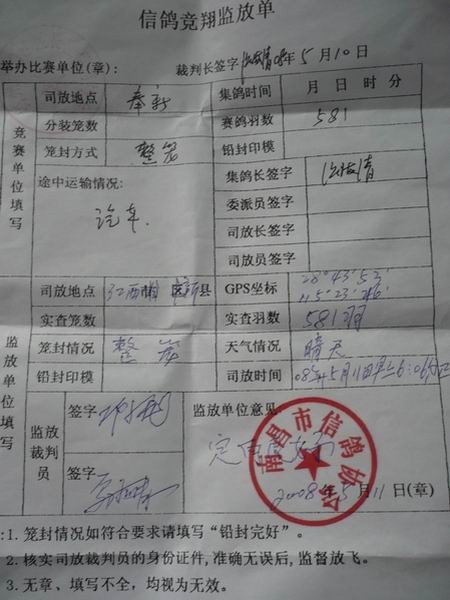 信鸽竞翔监放单
举办比赛单位(章): 裁判长签字 08年5月10日
竞赛单位填写
司放地点 奉新 集鸽时间 月 日 时 分
分装笼数 赛鸽羽数 581
笼封方式 整笼 铅封印模
途中运输情况: 集鸽长签字
汽车. 委派员签字
司放长签字
司放员签字
监放单位填写
司放地点 江西 奉新县 GPS坐标 28°43′53″
115°23′
实查笼数 实查羽数 581羽
笼封情况 整笼 天气情况 晴天
铅封印模 司放时间 08年5月11日早上6:06分
监放裁判员 签字 监放单位意见:
签字
南昌市信鸽协会
2008年5月11日(章)
:1. 笼封情况如符合要求请填写“铅封完好”。
2. 核实司放裁判员的身份证件,准确无误后,监督放飞。
3. 无章、填写不全,均视为无效。